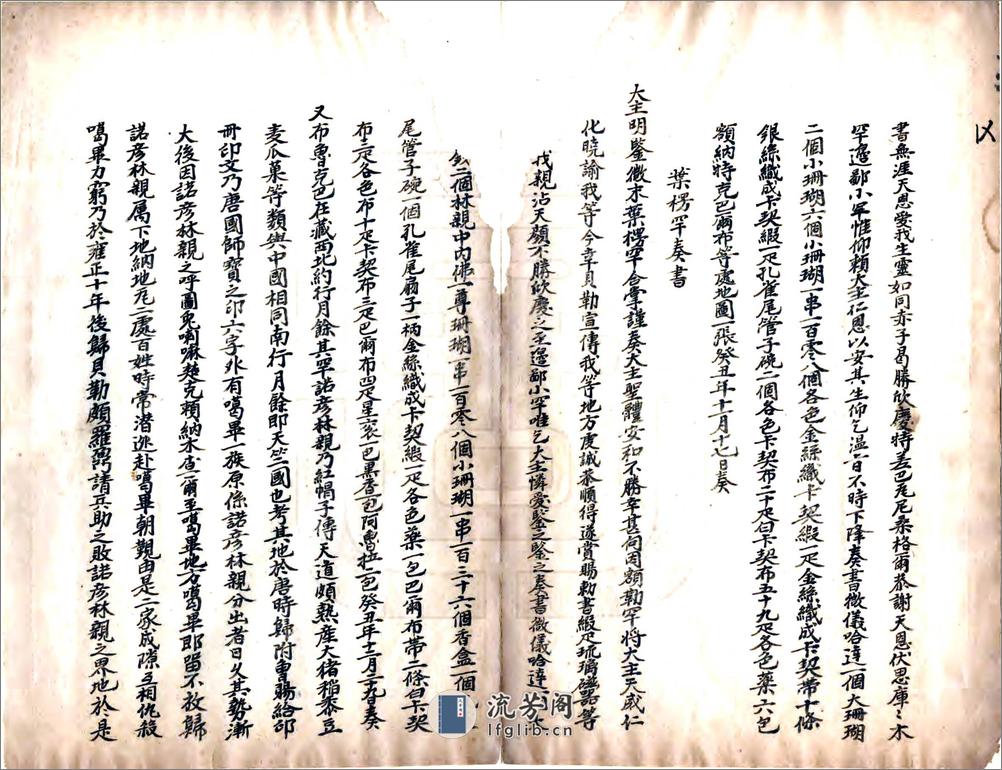 書無涯天恩愛我生靈如同赤子曷勝欣慶特差巴尼尼桑格爾恭謝天恩伏思庫庫木
罕邊鄙小罕惟仰賴大主仁恩以安其生仰乞溫旨不時下降奏書微儀哈達一個大珊瑚
二個小珊瑚六個小珊瑚一串一百零八個各色金絲織卡契緞一疋金絲織成卡契帶十條
銀絲織成卡契緞一疋孔雀尾管子碗二個各色卡契布二十疋白卡契布五十九疋各色藥六包
額納特克巴爾布等處地圖一張癸丑年十一月十七日奏
葉楞罕奏書
大主明鑒微末葉楞罕合掌謹奏大主聖體安和不勝幸甚向因額勒罕將大主天威仁
化曉諭我等今幸貝勒宣傳我等地方虔誠恭順得遂賞賜勅書緞疋琉璃磁器等
我親沾天顏不勝欣慶之至邊鄙小罕唯乞大主憐愛鑒之鑒之奏書微儀哈達一個
二個林親中內佛一尊珊瑚一串一百零八個小珊瑚一串一百三十六個香盒一個
尾管子碗一個孔雀尾扇子一柄金絲織成卡契緞一疋各色藥一包巴爾布帶二條白卡契
布三疋各色布十疋卡契布三疋巴爾布四疋星哀一巴黑香一包阿魯拉一包癸丑年十二月二十九日奏
又布魯克巴在藏西北約行月餘其罕諾彥林親乃紅帽子傳天道頗熱產大猪稻黍豆
麦瓜菓等類與中國相同南行月餘即天竺國也考其地於唐時歸附曾賜給部
冊印文乃唐國師寶之印六字外有噶畢一族原係諾彥林親分出者日久其勢漸
大後因諾彥林親之呼圖克圖喇嘛楚克賴納木喀爾至噶畢地方噶畢即留不放歸
諾彥林親属下地納地尼三處百姓時常潜逃赴噶畢朝觀由是二家成隙互相仇殺
噶畢力窮乃於雍正十年後歸貝勒頗羅鼐請兵助之敗諾彥林親之界地於是
流芳阁
lfglib.cn